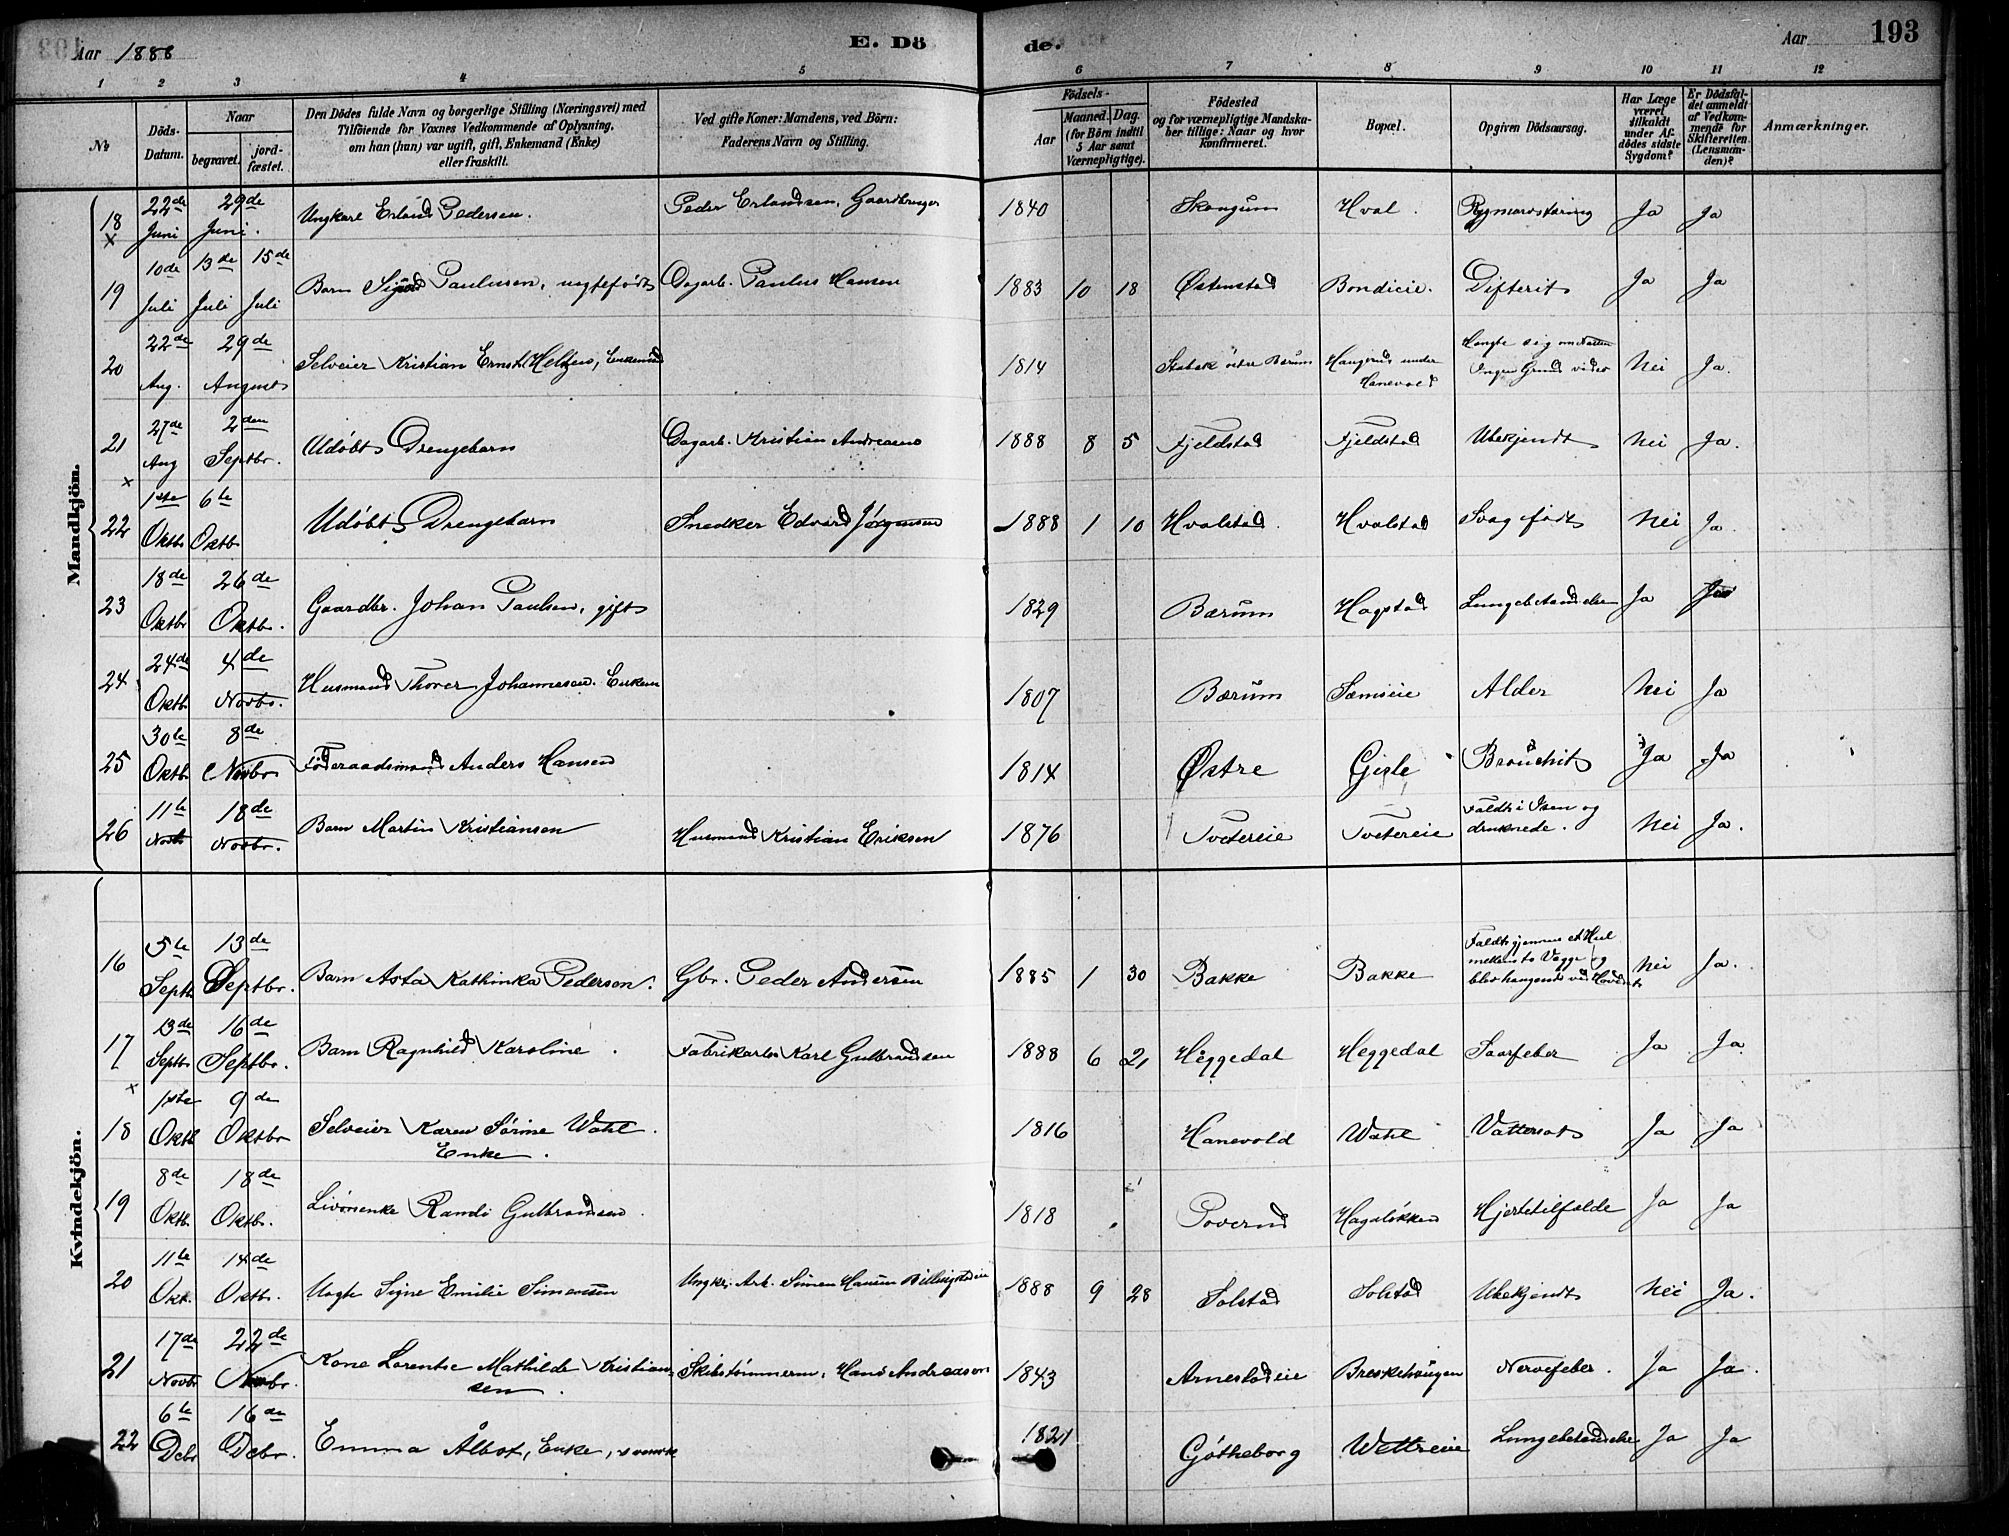 Aar 1888
E. Dö
de.
Aar
193
1 2 3 4 5 6 7 8 9 10 11 12
№
Döds-
Datum.
Naar
begravet.
jord-
fæstet.
Den Dödes fulde Navn og borgerlige Stilling (Næringsvei) med
Tilföiende for Voxnes Vedkommende af Oplysning,
om han (hun) var ugift, gift, Enkemand (Enke)
eller fraskilt.
Ved gifte Koner: Mandens, ved Börn:
Faderens Navn og Stilling.
Födsels-
Aar
Maaned. Dag.
(for Börn indtil
5 Aar samt
Værnepligtige).
Födested
og for værnepligtige Mandska-
ber tillige: Naar og hvor
konfirmeret.
Bopæl.
Opgiven Dödsaarsag.
Har Læge
været
tilkaldt
under Af-
dödes sidste
Sygdom?
Er Dödsfal-
det anmeldt
af Vedkom-
mende for
Skifteretten
(Lensman-
den)?
Anmærkninger.
Mandkjön.
18 × 22de Juni 29de Juni. Ungkarl Erland Pedersen. Peder Erlandsen, Gaardbruger 1840 Skaugum Hval. Rygmarvstæring Ja Ja
19 10de Juli 13de Juli 15de Juli Barn Sigurd Paulusen, uægtefødt Dagarb. Paulus Hansen 1883 10 18 Østenstad Bondieie. Difterit Ja Ja
20 22de Aug. 29de August Selveier Kristian Ernst Heltzen, Enkemand 1814 Stabæk østre Bærum Haugerud under Hanevold Hængte sig om Natten Ingen Grund vides Nei Ja.
21 27de Aug 2den Septbr. Udøbt Drengebarn Dagarb. Kristian Andreasen 1888 8 5 Fjeldstad Fjeldstad Ubekjendt Nei Ja.
22 × 1ste Oktb. 6te Oktb. Udøbt Drengebarn Snedker Edvard Jørgensen 1888 1 10 Hvalstad. Hvalstad Svag født Nei Ja.
23 18de Oktbr 26de Oktbr. Gaardbr. Johan Paulsen, gift 1829 Bærum Hagstad Lungebetændelse Ja Ja
24 24de Oktb. 4de Novbr. Husmand Thorer Johannesen. Enkem 1807 Bærum Semseie Alder Nei Ja
25 30te Oktb. 8de Novbr Føderaadsmand Anders Hansen 1814 Østre Gjesle Bronchit Ja Ja
26 11te Novb. 18de Novbr. Barn Martin Kristiansen Husmand Kristian Eriksen 1876 Tvetereie Tvetereie Faldt i Isen og druknede. Nei Ja.
Kvindekjön.
16 5te Septb. 13de Septbr. Barn Asta Kathinka Pedersen. Gbr. Peder Andersen 1885 1 30 Bakke Bakke Faldt gjennem et Hul mellem to Vægge og blev hængende ved Hovedet Nei Ja.
17 13de Septb. 16de Septbr. Barn Ragnhild Karoline. Fabrikarb. Karl Gulbrandsen 1888 6 21 Heggedal Heggedal Saarfeber Ja Ja
18 × 1ste Oktb 9de Oktbr Selveier Karen Sørine Wahl. Enke. 1816 Hanevold Wahl Vattersot Ja Ja
19 8de Oktb. 18de Oktbr. Livørenke Randi Gulbrandsen. 1818 Poverud Hagaløkken Hjertetilfælde Ja Ja
20 11te Okt. 14de Oktbr. Uægte Signe Emilie Simensen Ungk. Arb. Simen Hansen Billingstadeie 1888 9 28 Solstad Solstad Ubekjendt Nei Ja.
21 17de Novbr 22de Novbr. Kone Lorentse Mathilde Kristian- sen. Skibstømmerm. Hans Andreasen 1843 Arnestadeie Breskehaugen Nervefeber. Ja Ja.
22 6te Dcbr 16de Dcbr. Emma Ålbot, Enke, svensk 1821 Gøtheborg Wettreeie Lungebetændelse Ja Ja